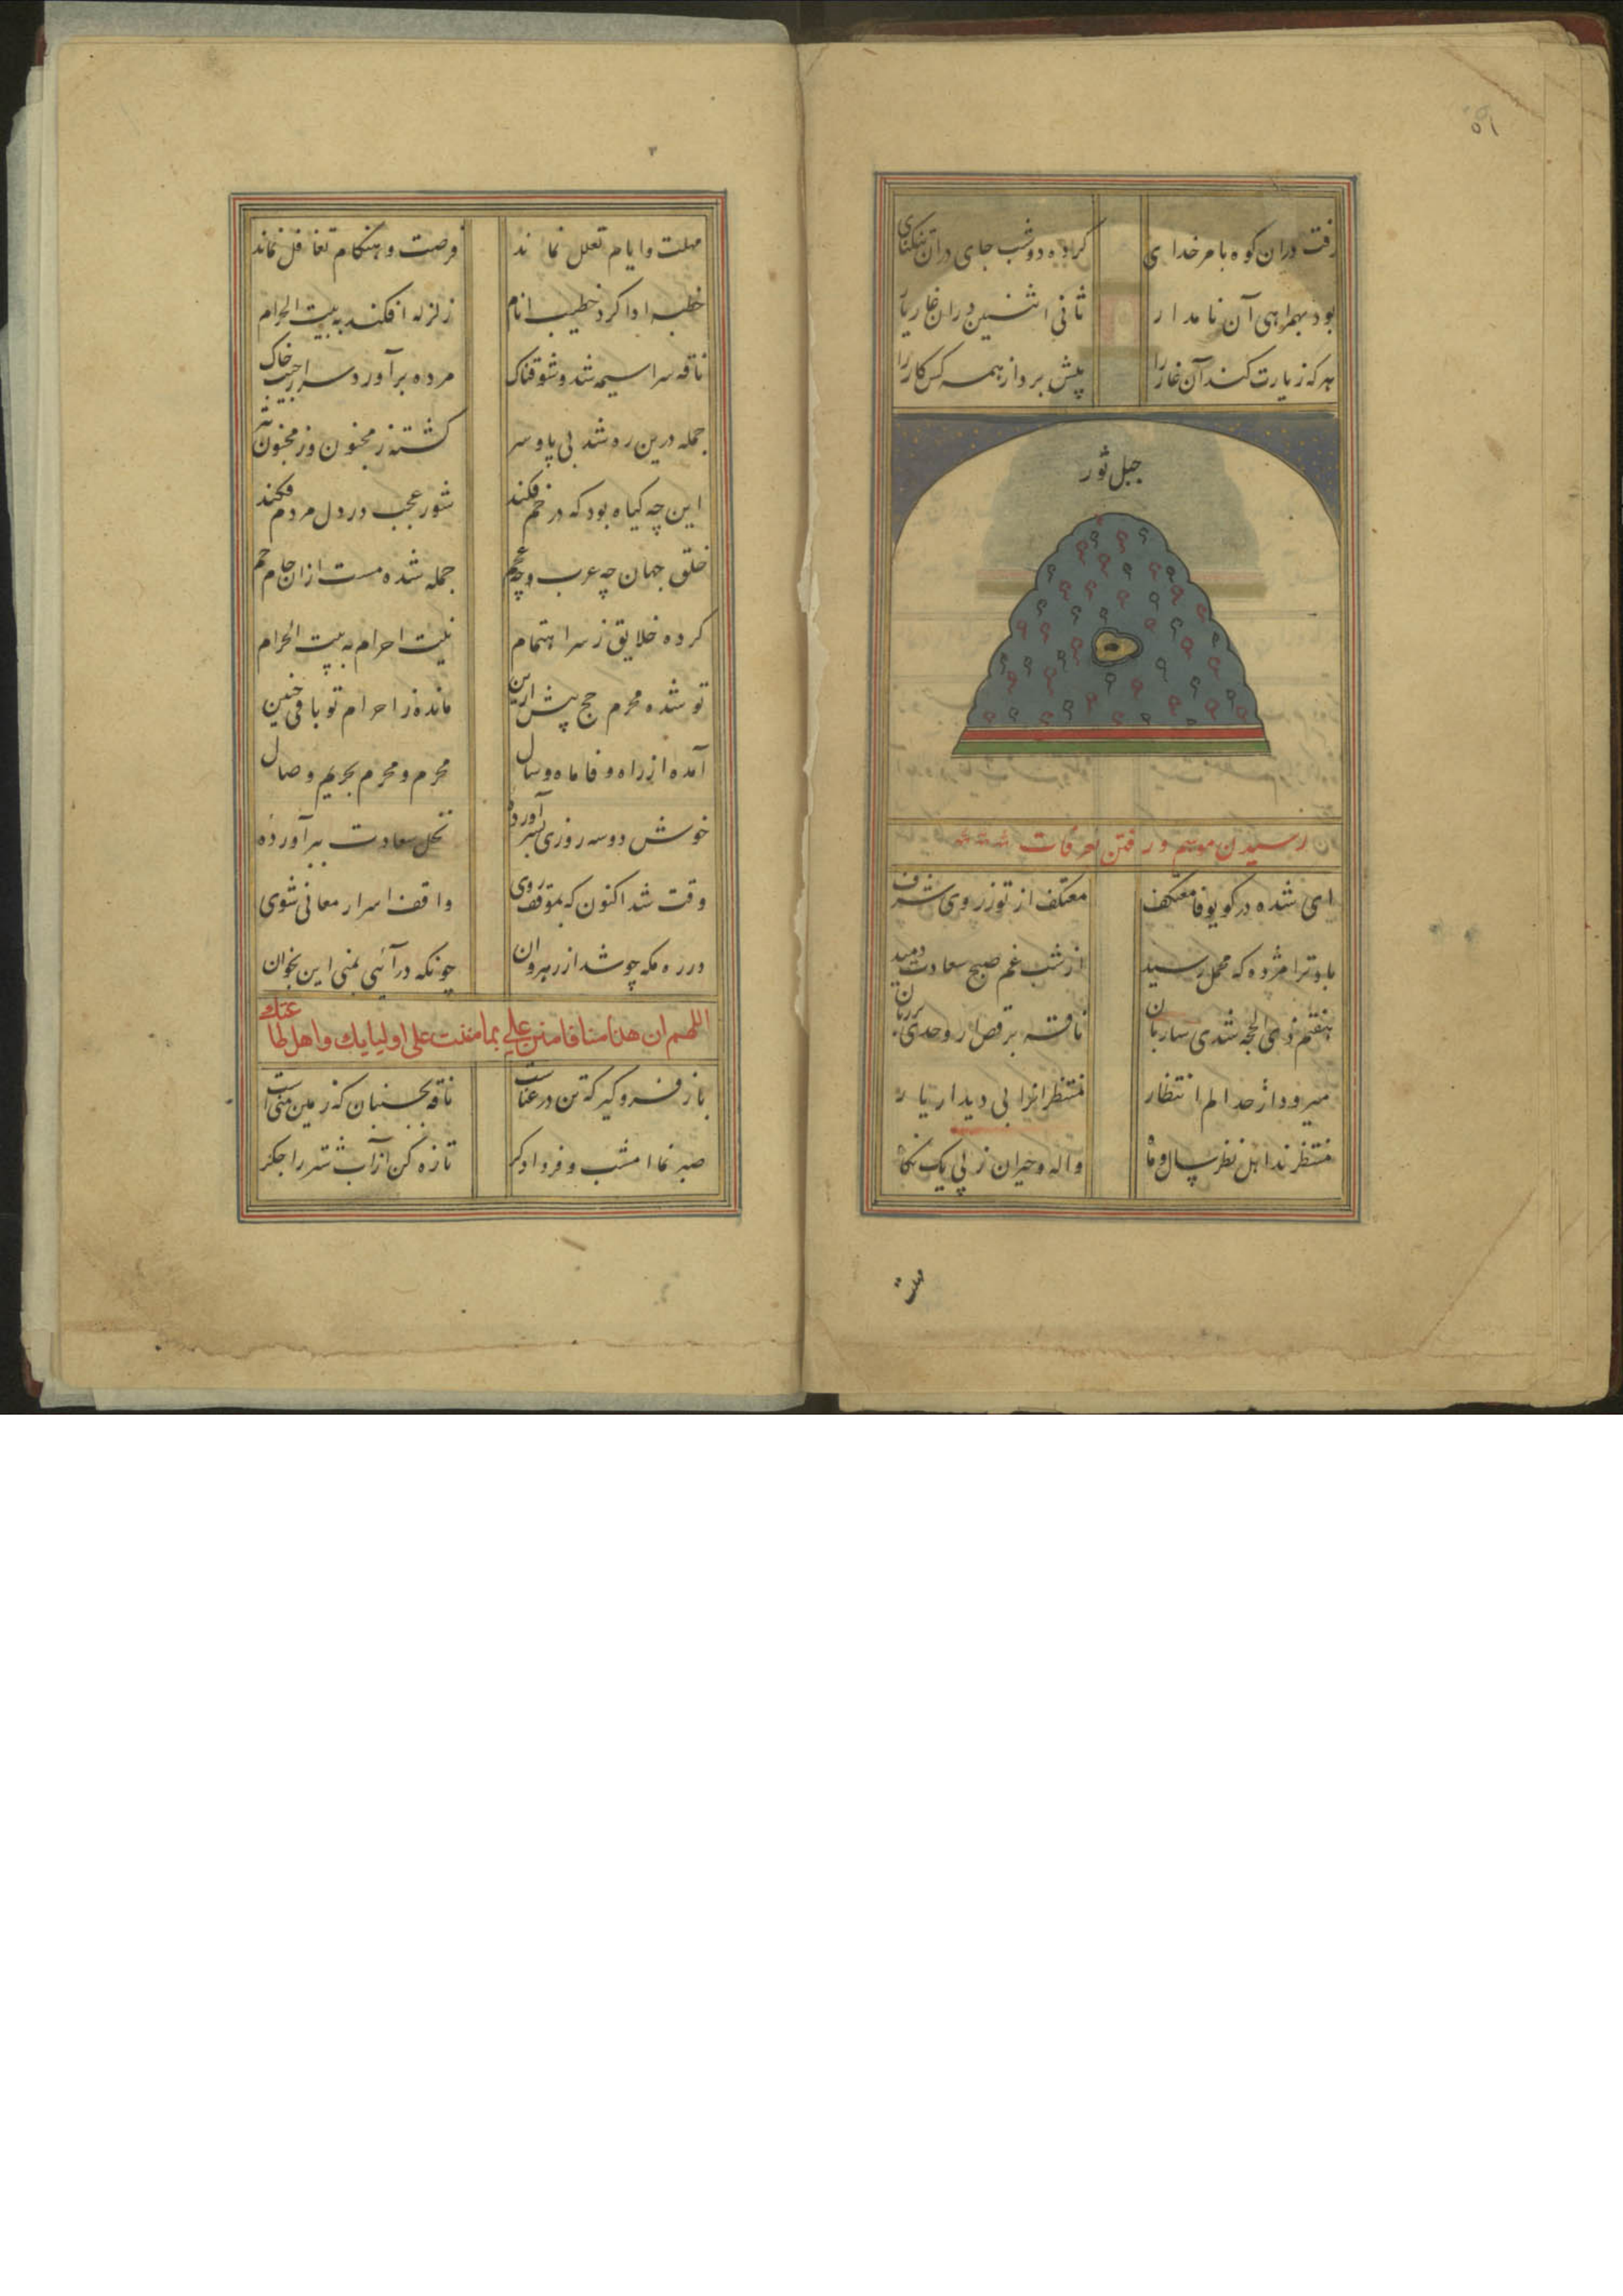 ۵۱
رفت دران کوه بامر خدای کرده دو شب جای دران تنگنای
بود بهمراهی آن نامدار ثانی اثنین دران غار یار
هر که زیارت کند آن غار را پیش برد از همه کس کار را
جبل ثور
رسیدن موسم و رفتن بعرفات
ای شده در کوی وفا معتکف معتکف از تو زر روی شرف
باد ترا مژده که محمل رسید از شب غم صبح سعادت دمید
هفتم ذی الحجه شد ای ساربان ناقه برقص آر و حدی
میرود از حد الم انتظار منتظرانرا بی دیدار یار
منتظرند اهل نظر سال و ماه واله و حیران ز پی یک نگاه
مهلت
مهلت و ایام تعلل نماند فرصت و هنگام تغافل نماند
خطبه ادا کرد خطیب انام زلزله افکند به بیت الحرام
ناقه سراسیمه شد و شوقناک مرده برآورد سر از جیب خاک
جمله درین ره شد بی پا و سر گشته ز مجنون وز مجنون بتر
این چه گیاه بود که در خم فکند شور عجب در دل مردم فکند
خلق جهان چه عرب و چه عجم جمله شده مست ازان جام جم
کرده خلایق ز سر اهتمام نیت احرام به بیت الحرام
تو شده محرم حج پیش ازین مانده ز احرام تو باقی چنین
آمده از راه وفا ماه و سال محرم و محرم بحریم وصال
خوش دو سه روزی بسر آورده نخل سعادت ببر آورده
وقت شد اکنون که بموقف روی واقف اسرار معانی شوی
در ره مکه چو شد از رهروان چونکه درآئی بمنی این بخوان
اللهم ان هذا منا فامنن علی بما مننت علی اولیایک و اهل طاعتک
باز فرو گیر که تن در عناست ناقه بجنبان که زمین منی است
صبر نما امشب و فردا دگر تازه کن از آب شتر را جگر